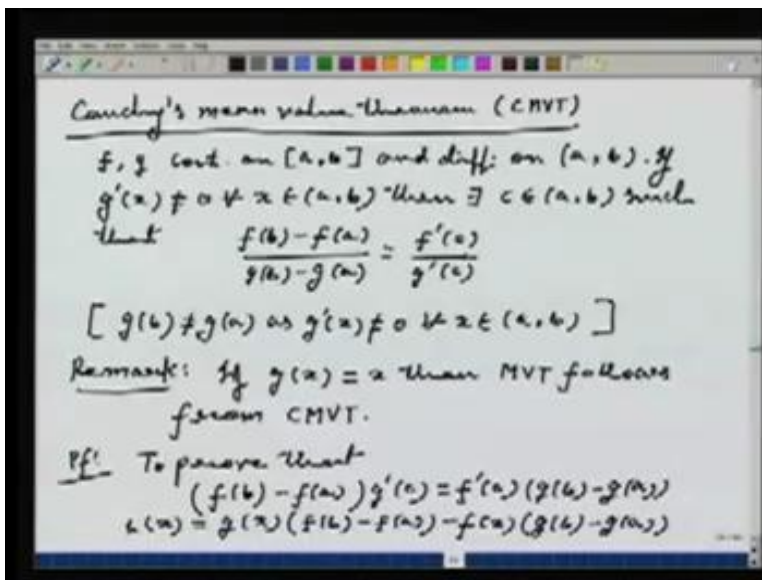 Cauchy's mean value theorem (CMVT)
f, g cont. on [a,b] and diff. on (a,b). If
g'(x) ≠ 0 ∀ x ∈ (a,b) then ∃ c ∈ (a,b) such
that (f(b)-f(a))/(g(b)-g(a)) = f'(c)/g'(c)
[ g(b) ≠ g(a) as g'(x) ≠ 0 ∀ x ∈ (a,b) ]
Remark: If g(x) = x then MVT follows
from CMVT.
Pf: To prove that
(f(b)-f(a)) g'(c) = f'(c) (g(b)-g(a))
h(x) = g(x) (f(b)-f(a)) - f(x) (g(b)-g(a))